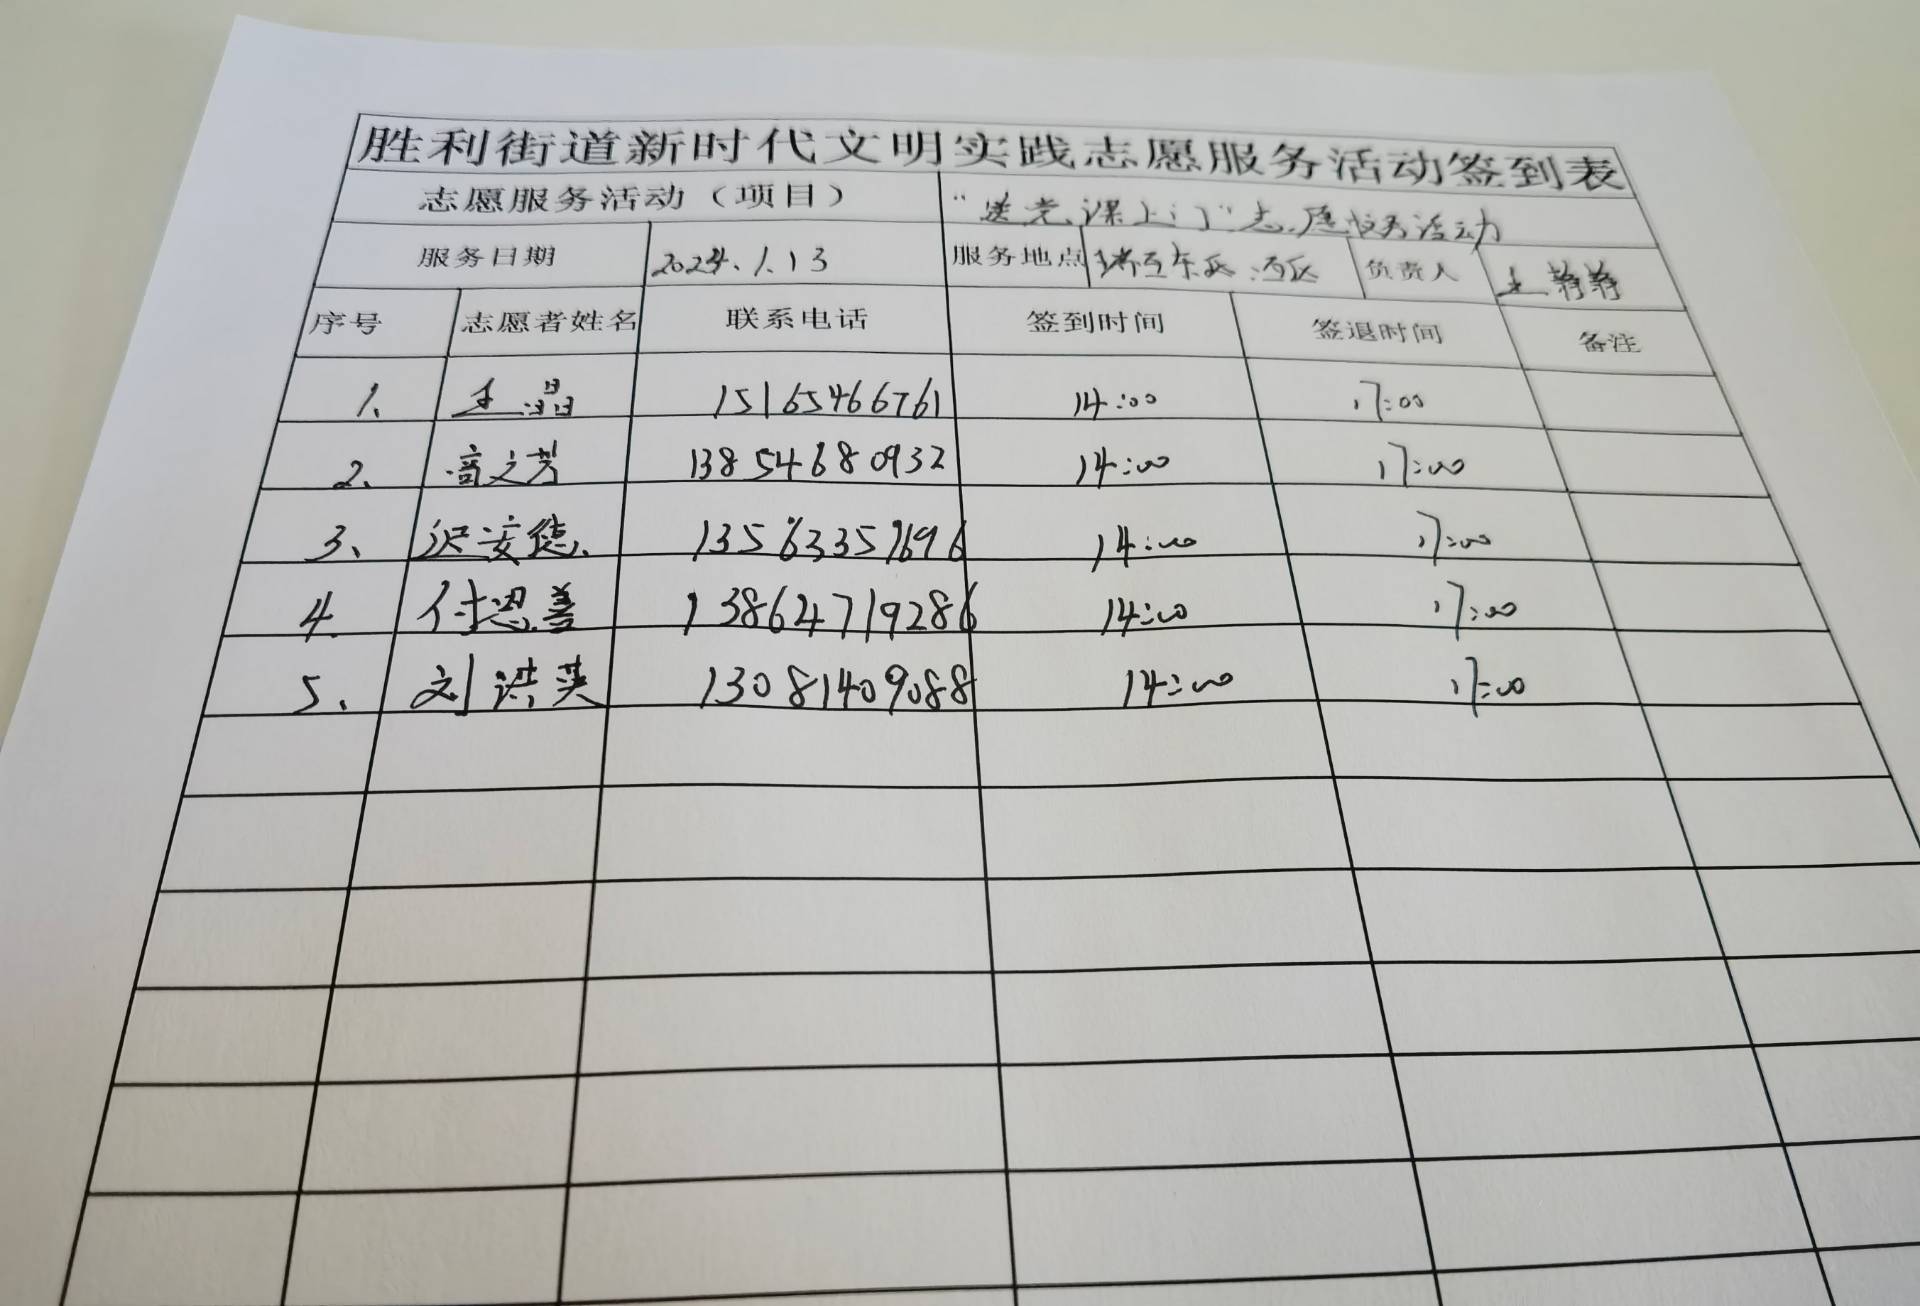 胜利街道新时代文明实践志愿服务活动签到表
志愿服务活动（项目） “送党课上门”志愿服务活动
服务日期 2024.1.13 服务地点 东区、西区 负责人 王静静
序号 志愿者姓名 联系电话 签到时间 签退时间 备注
1、 王晶 15165466761 14:00 17:00
2、 高文芳 13854680932 14:00 17:00
3、 安德 13563357696 14:00 17:00
4. 付恩善 13864719286 14:00 17:00
5、 刘洪英 13081409088 14:00 17:00